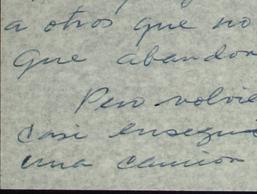 a otros que no
que abandon
Pero volvie
casi ensegui
una camion